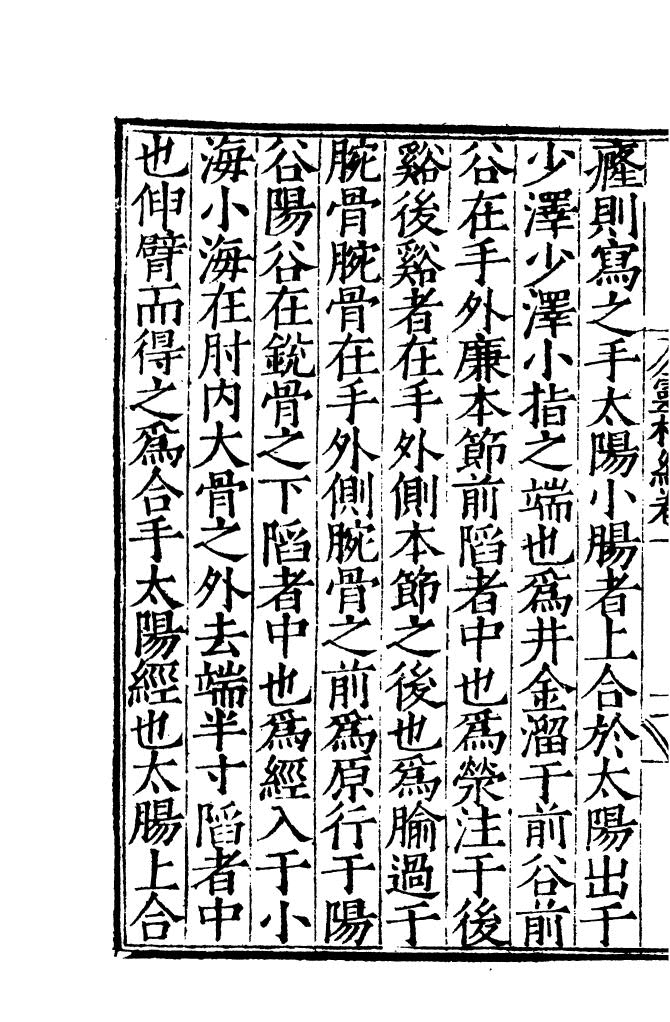 癃則寫之手太陽小腸者上合於太陽出于
少澤少澤小指之端也爲井金溜于前谷前
谷在手外廉本節前陷者中也爲滎注于後
谿後谿者在手外側本節之後也爲腧過于
腕骨腕骨在手外側腕骨之前爲原行于陽
谷陽谷在銳骨之下陷者中也爲經入于小
海小海在肘内大骨之外去端半寸陷者中
也伸臂而得之爲合手太陽經也太腸上合